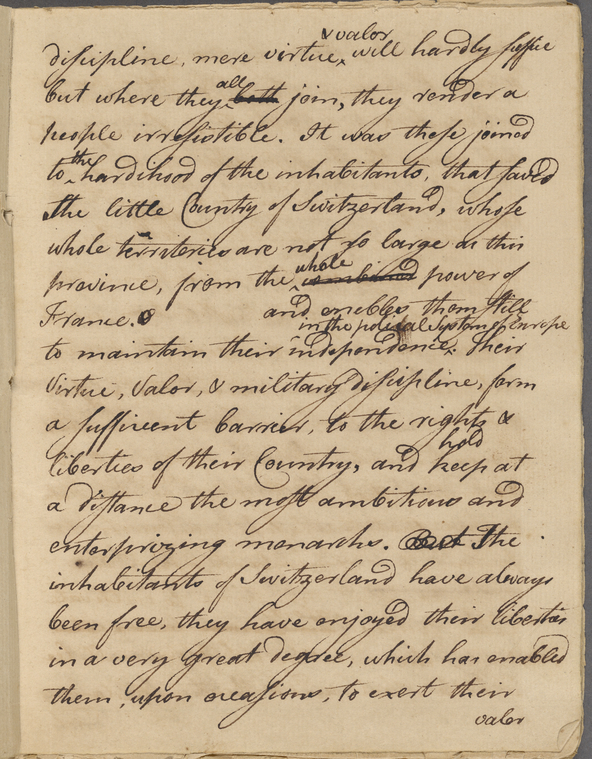 & valor
discipline, mere virtue, ^ will hardly suffice
all
but where they ^ both join, they render a
people irresistible. It was these joined
the
to ^ hardihood of the inhabitants, that saved
the little Country of Switzerland, whose
whole territories are not so large as this
whole
province, from the ^ combined power of
France. and enables them still
in the political System of Europe
to maintain their independence. Their
virtue, valor, & military discipline, form
a sufficent barrier, to the rights &
hold
liberties of their Country, and keep at
a distance the most ambitious and
enterprizing monarchs. But The
inhabitants of Switzerland have always
been free, they have enjoyed their liberties
in a very great degree, which has enabled
them, upon occasions, to exert their
valor